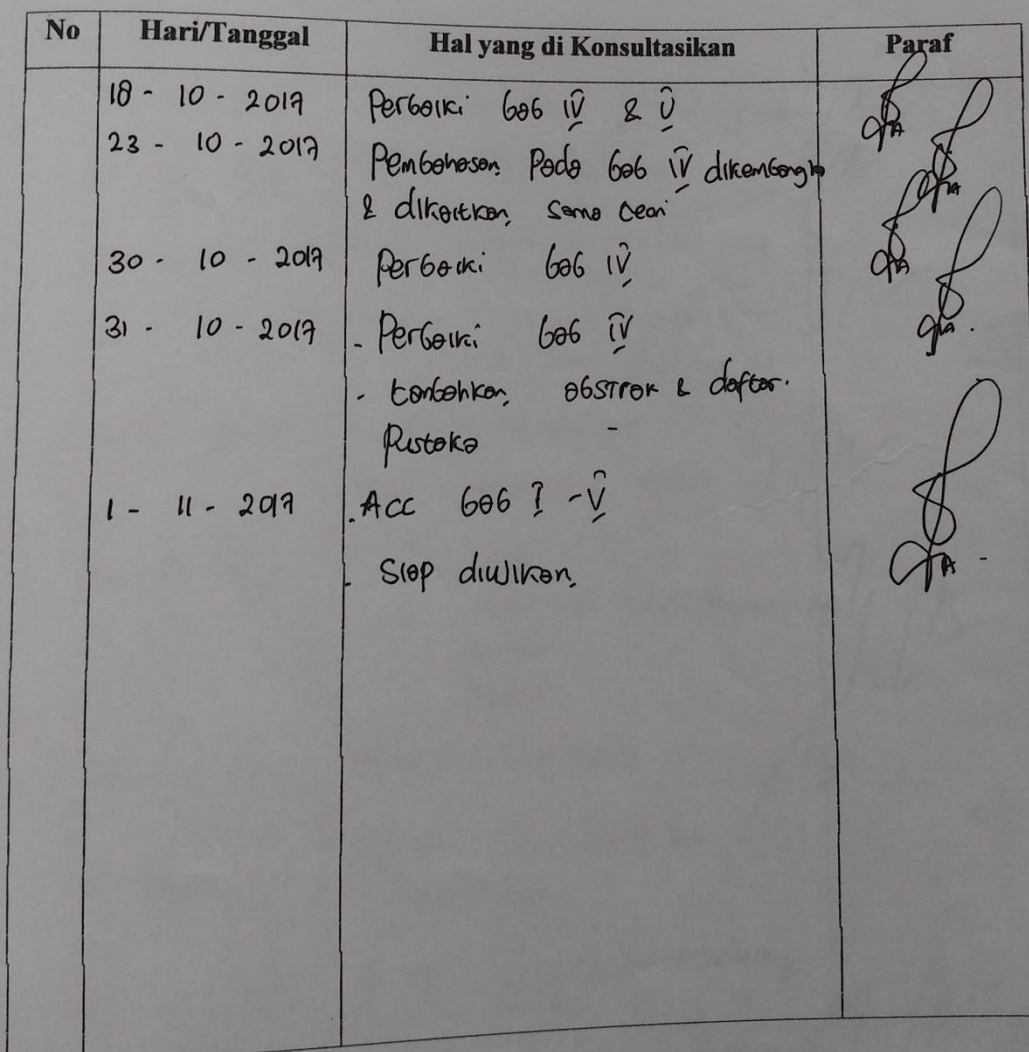 No Hari/Tanggal Hal yang di Konsultasikan Paraf
18 - 10 - 2017 Perbaiki bab IV & V
23 - 10 - 2017 Pembahasan Pada bab IV dikembangkn
& dikaitkan sama teori
30 - 10 - 2017 Perbaiki bab IV
31 - 10 - 2017 - Perbaiki bab IV
- tambahkan abstrak & daftar
Pustaka
1 - 11 - 2017 . Acc bab I - V
. Siap diujikan